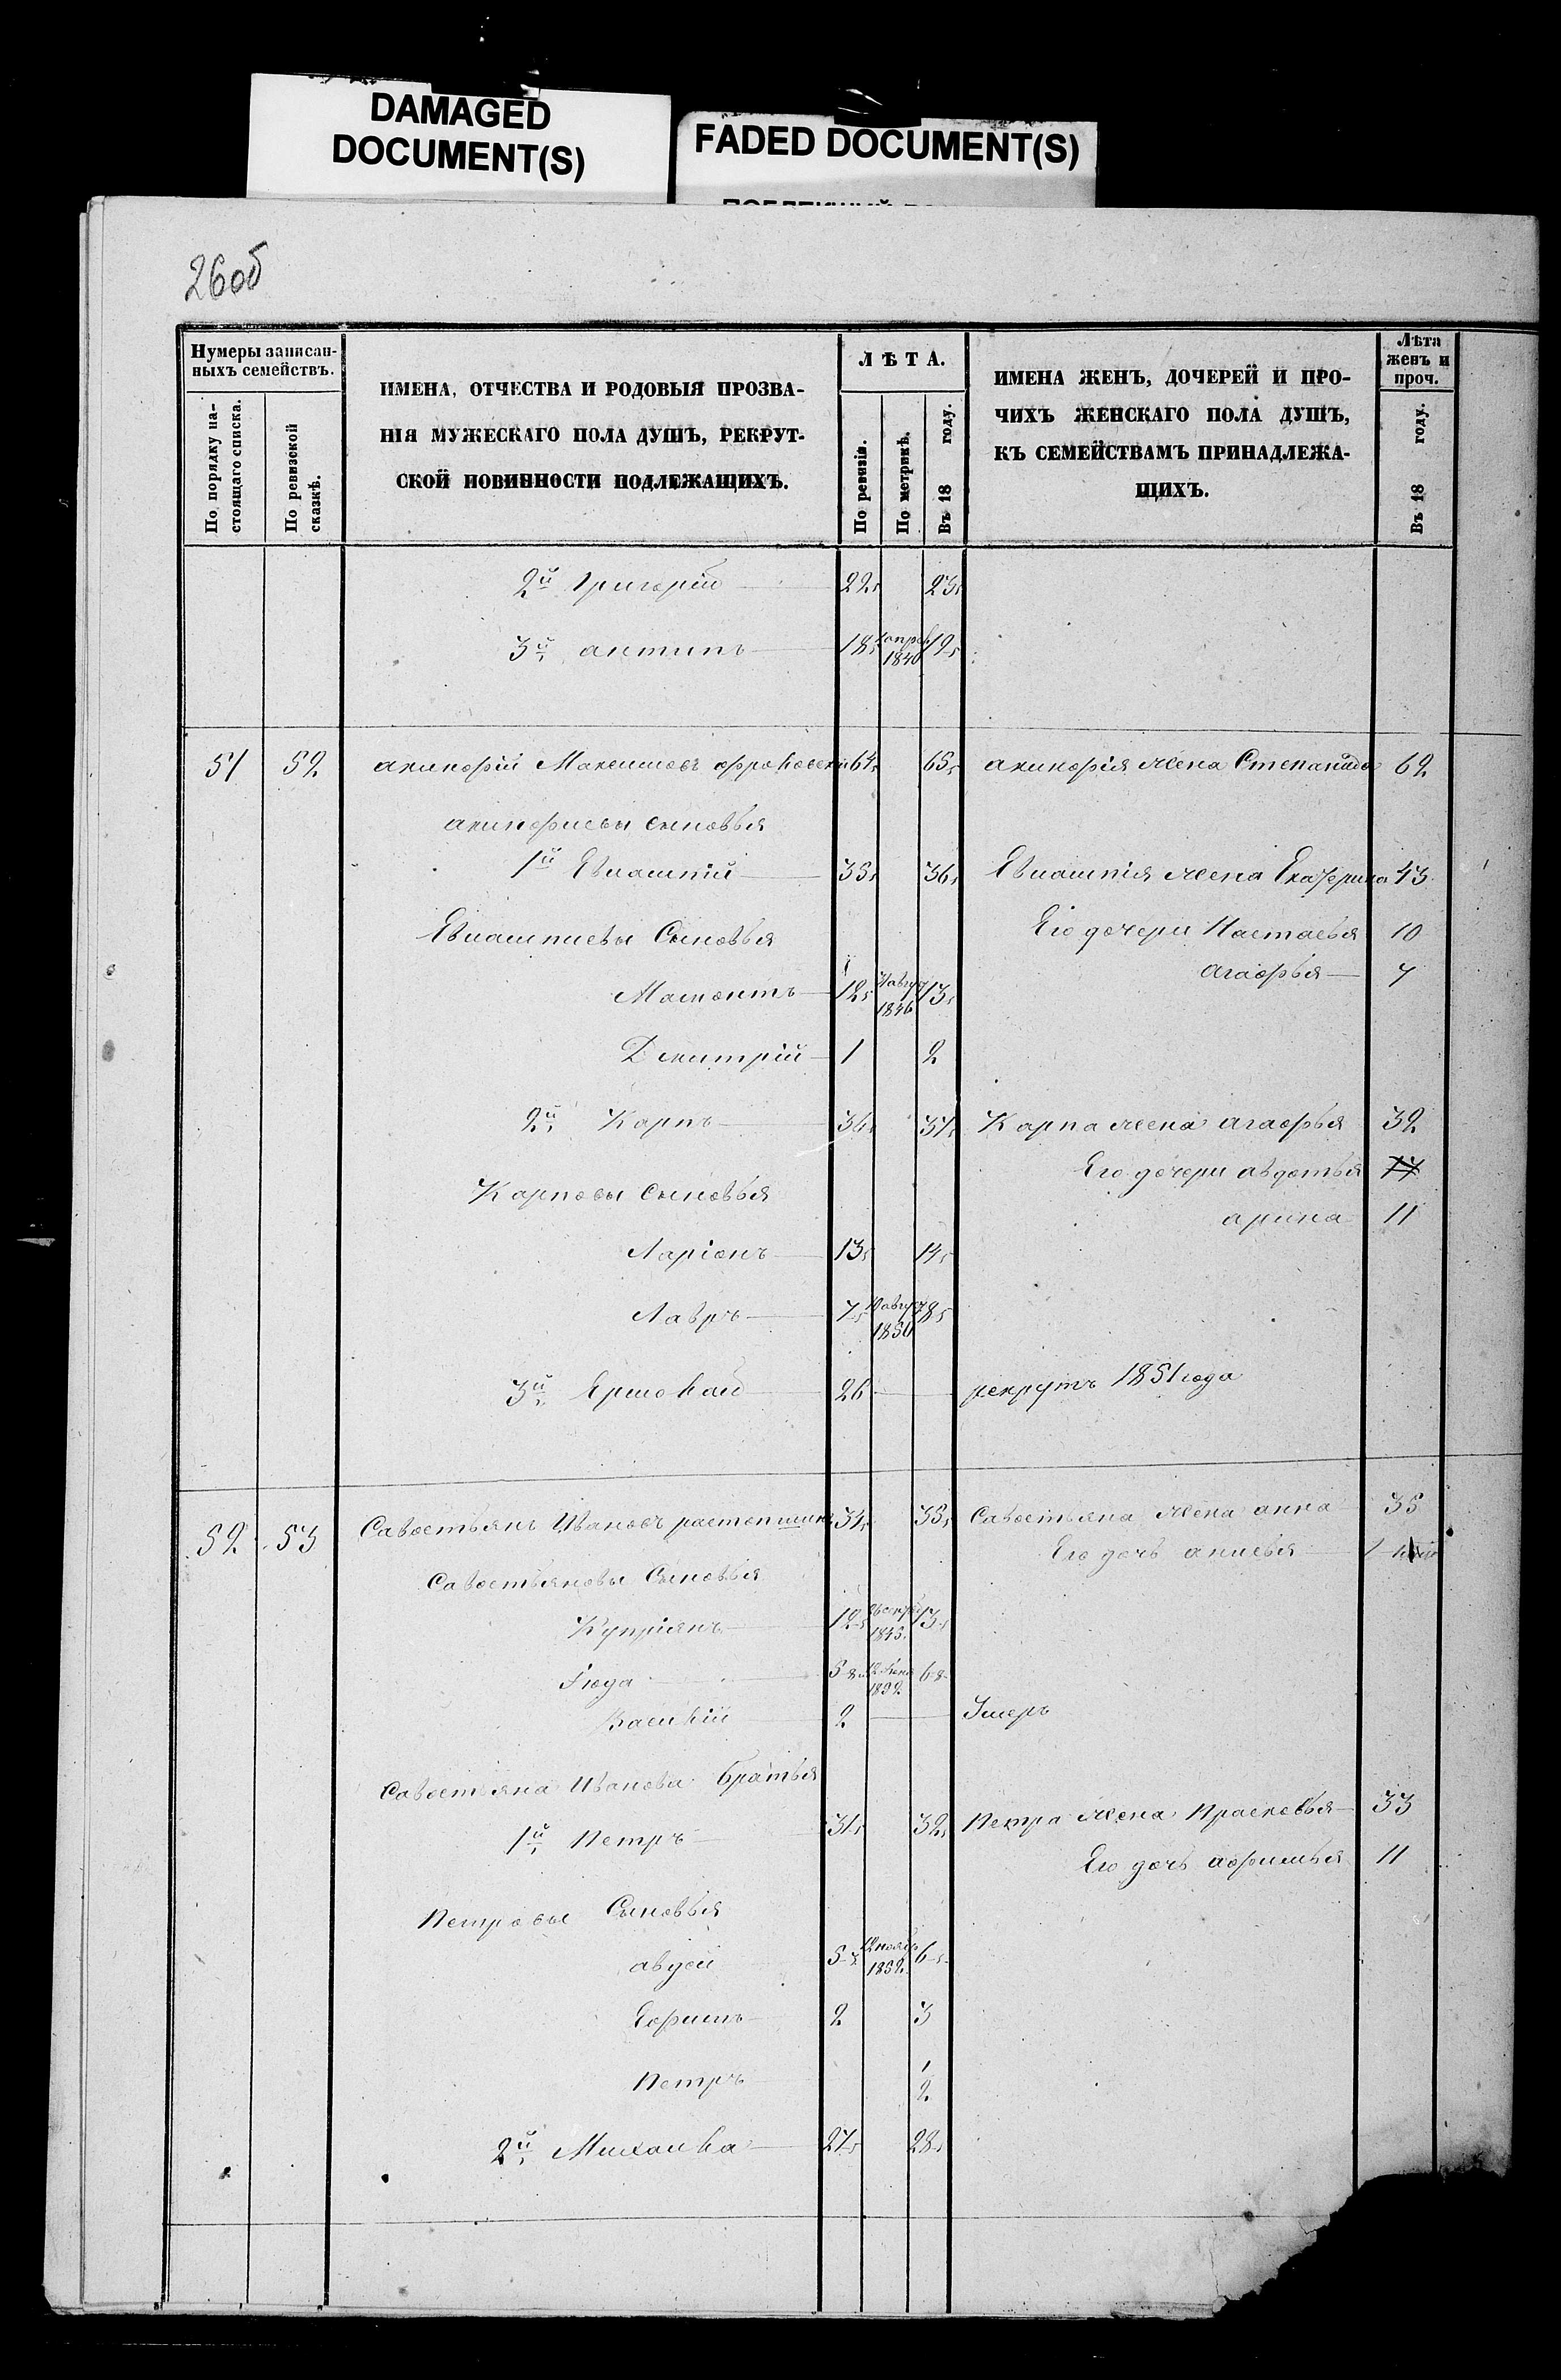 DAMAGED
DOCUMENT(S)
FADED DOCUMENT(S)
26об
Нумеры записан-
ныхъ семействъ.
По порядку на-
стоящаго списка.
По ревизской
сказкѣ.
ИМЕНА, ОТЧЕСТВА И РОДОВЫЯ ПРОЗВА-
НІЯ МУЖЕСКАГО ПОЛА ДУШЪ, РЕКРУТ-
СКОЙ ПОВИННОСТИ ПОДЛЕЖАЩИХЪ.
ЛѢТА.
По ревизіи.
По метрикѣ.
Въ 18 году.
ИМЕНА ЖЕНЪ, ДОЧЕРЕЙ И ПРО-
ЧИХЪ ЖЕНСКАГО ПОЛА ДУШЪ,
КЪ СЕМЕЙСТВАМЪ ПРИНАДЛЕЖА-
ЩИХЪ.
Лѣта
женъ и
проч.
Въ 18 году.
2й Григорій 22 23
3й антипъ 18 1840 19
51 52 акинфій Максимовъ 64 65 акинфія жена Степанида 62
акинфиевы сыновья
1й Евлампій 35 36 Евлампія жена Екатерина 43
Евлампиевы Сыновья Его дочери Настасья 10
агафья 7
Мамонтъ 12 август 1846 13
Дмитрій 1 2
2й Карпъ 36 37 Карпа жена агафья 32
Его дочери авдотья
Карповы сыновья арина 11
Ларіонъ 13 14
Лавръ 7 август 1850 8
3й Ермолай 26 рекрутъ 1851 года
52 53 Савостьянъ Ивановъ растопшинъ 34 35 Савостьяна жена анна 35
Его дочь анисья
Савостьяновы Сыновья
Купріянъ 12 1845 13
Іюда 5 1852 6
Василій 2 Умеръ
Савостьяна Иванова братья
1й Петръ 31 32 Петра жена Прасковья 33
Его дочь афимья 11
Петровы Сыновья
авдей 5 12 ноябр 1852 6
Ефимъ 2 3
Петръ 1/2
2й Михаила 27 28